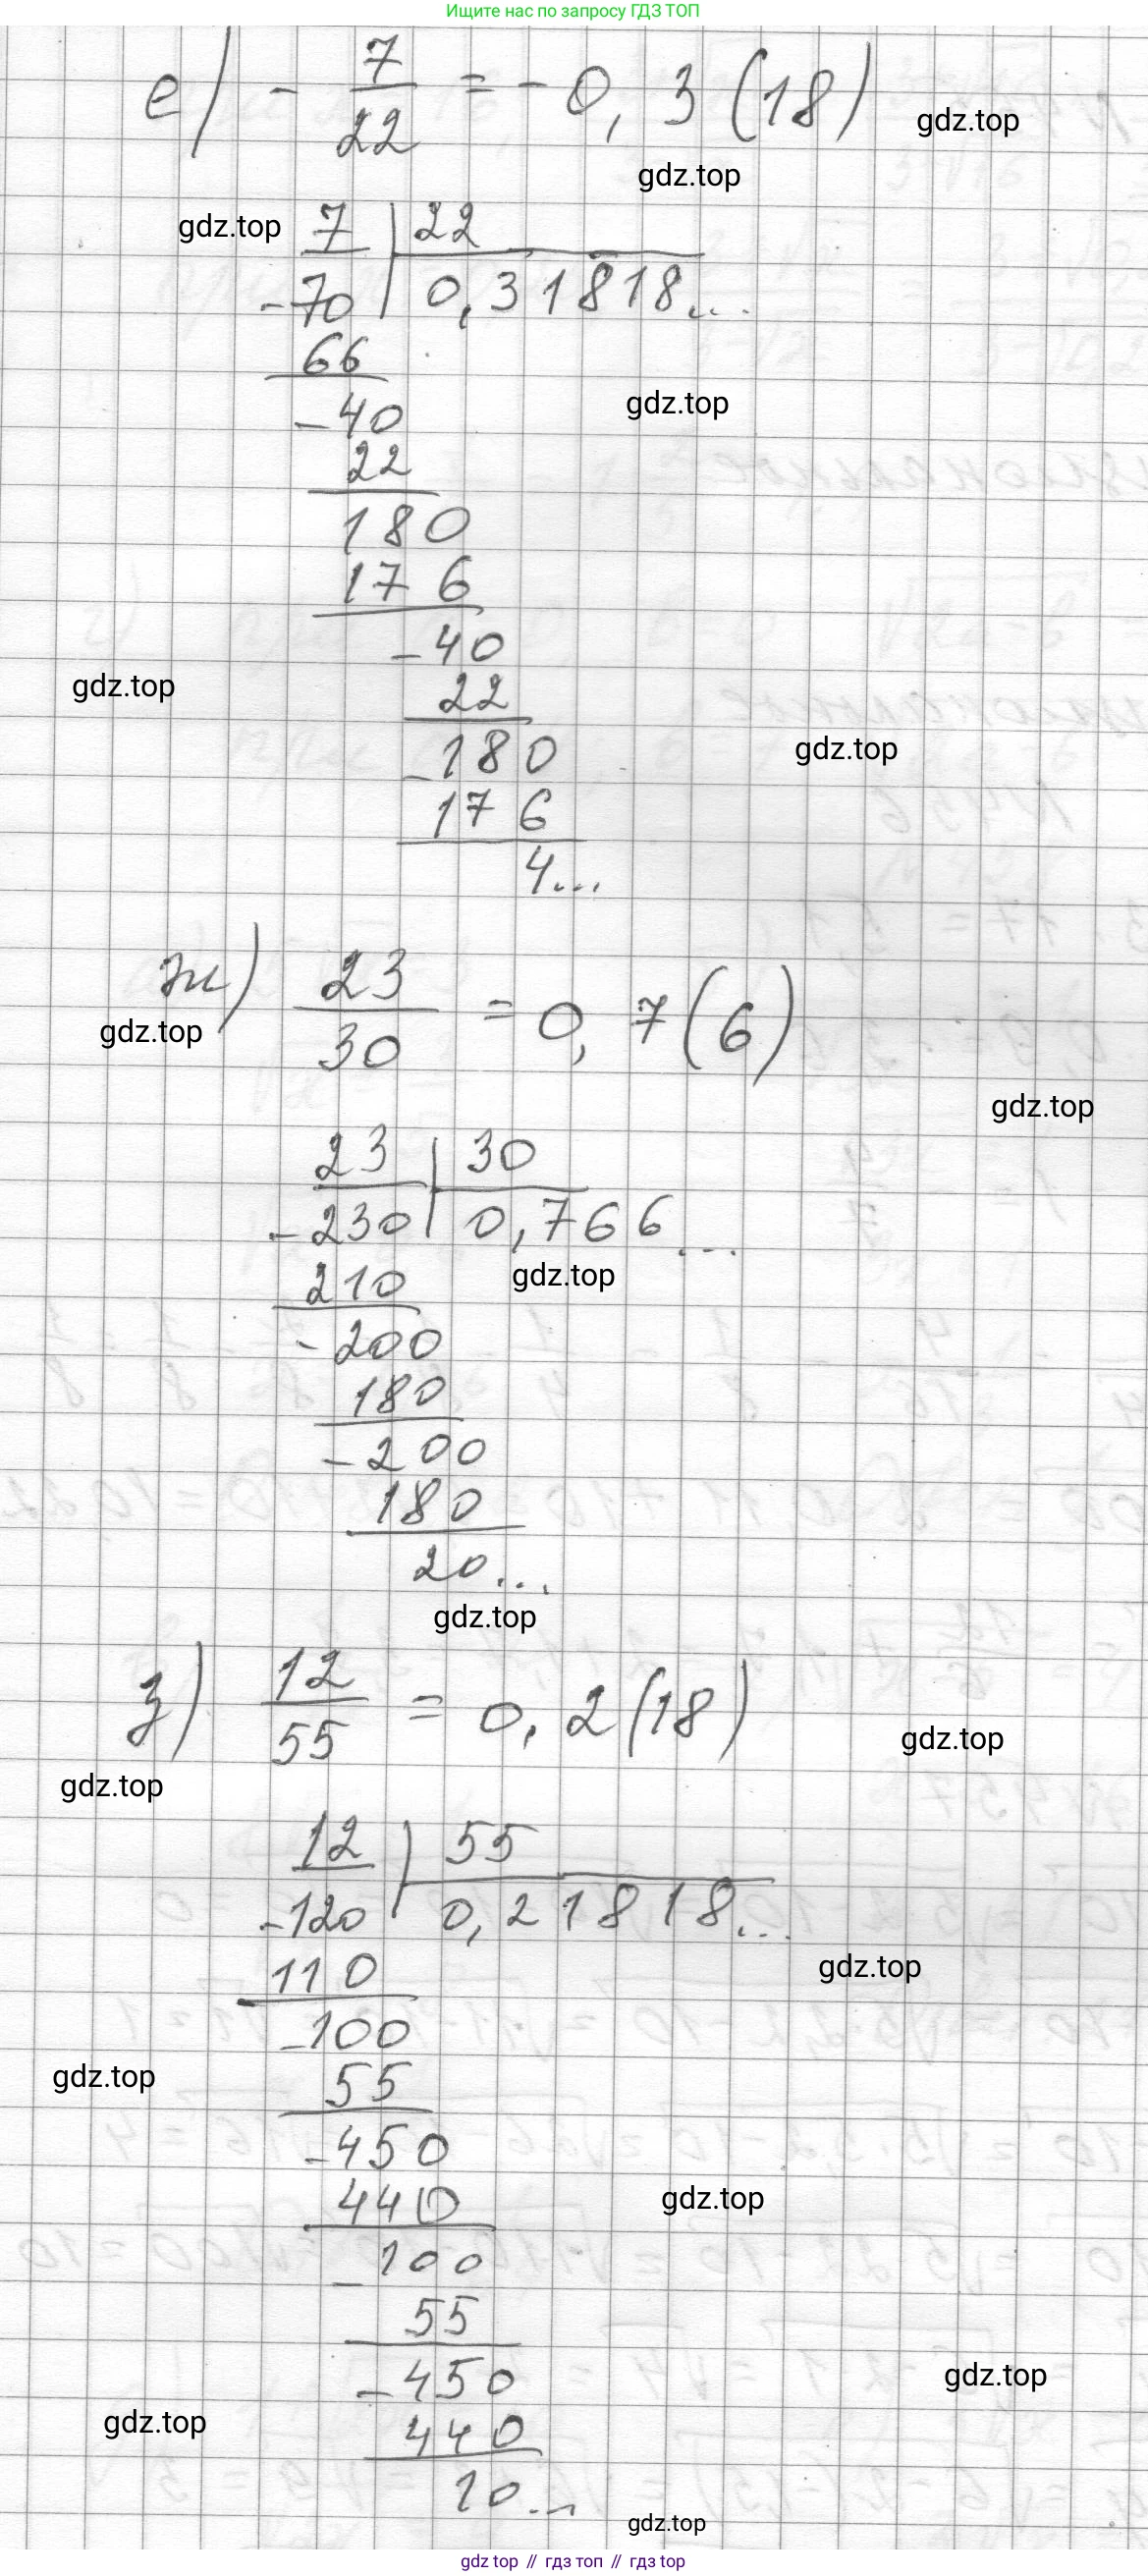 Ищите нас по запросу ГДЗ ТОП
е) - 7/22 = - 0,3(18)
gdz.top
gdz.top
gdz.top
7 | 22
-70 | 0,31818...
66
-40
gdz.top
22
180
176
-40
gdz.top
22
-180
gdz.top
176
4...
ж) 23/30 = 0,7(6)
gdz.top
gdz.top
23 | 30
-230 | 0,766...
gdz.top
210
-200
180
-200
180
20...
gdz.top
з) 12/55 = 0,2(18)
gdz.top
gdz.top
12 | 55
-120 | 0,21818...
gdz.top
110
-100
gdz.top
55
-450
gdz.top
440
-100
55
-450
gdz.top
gdz.top
440
10...
gdz.top
gdz top // гдз топ // гдз top